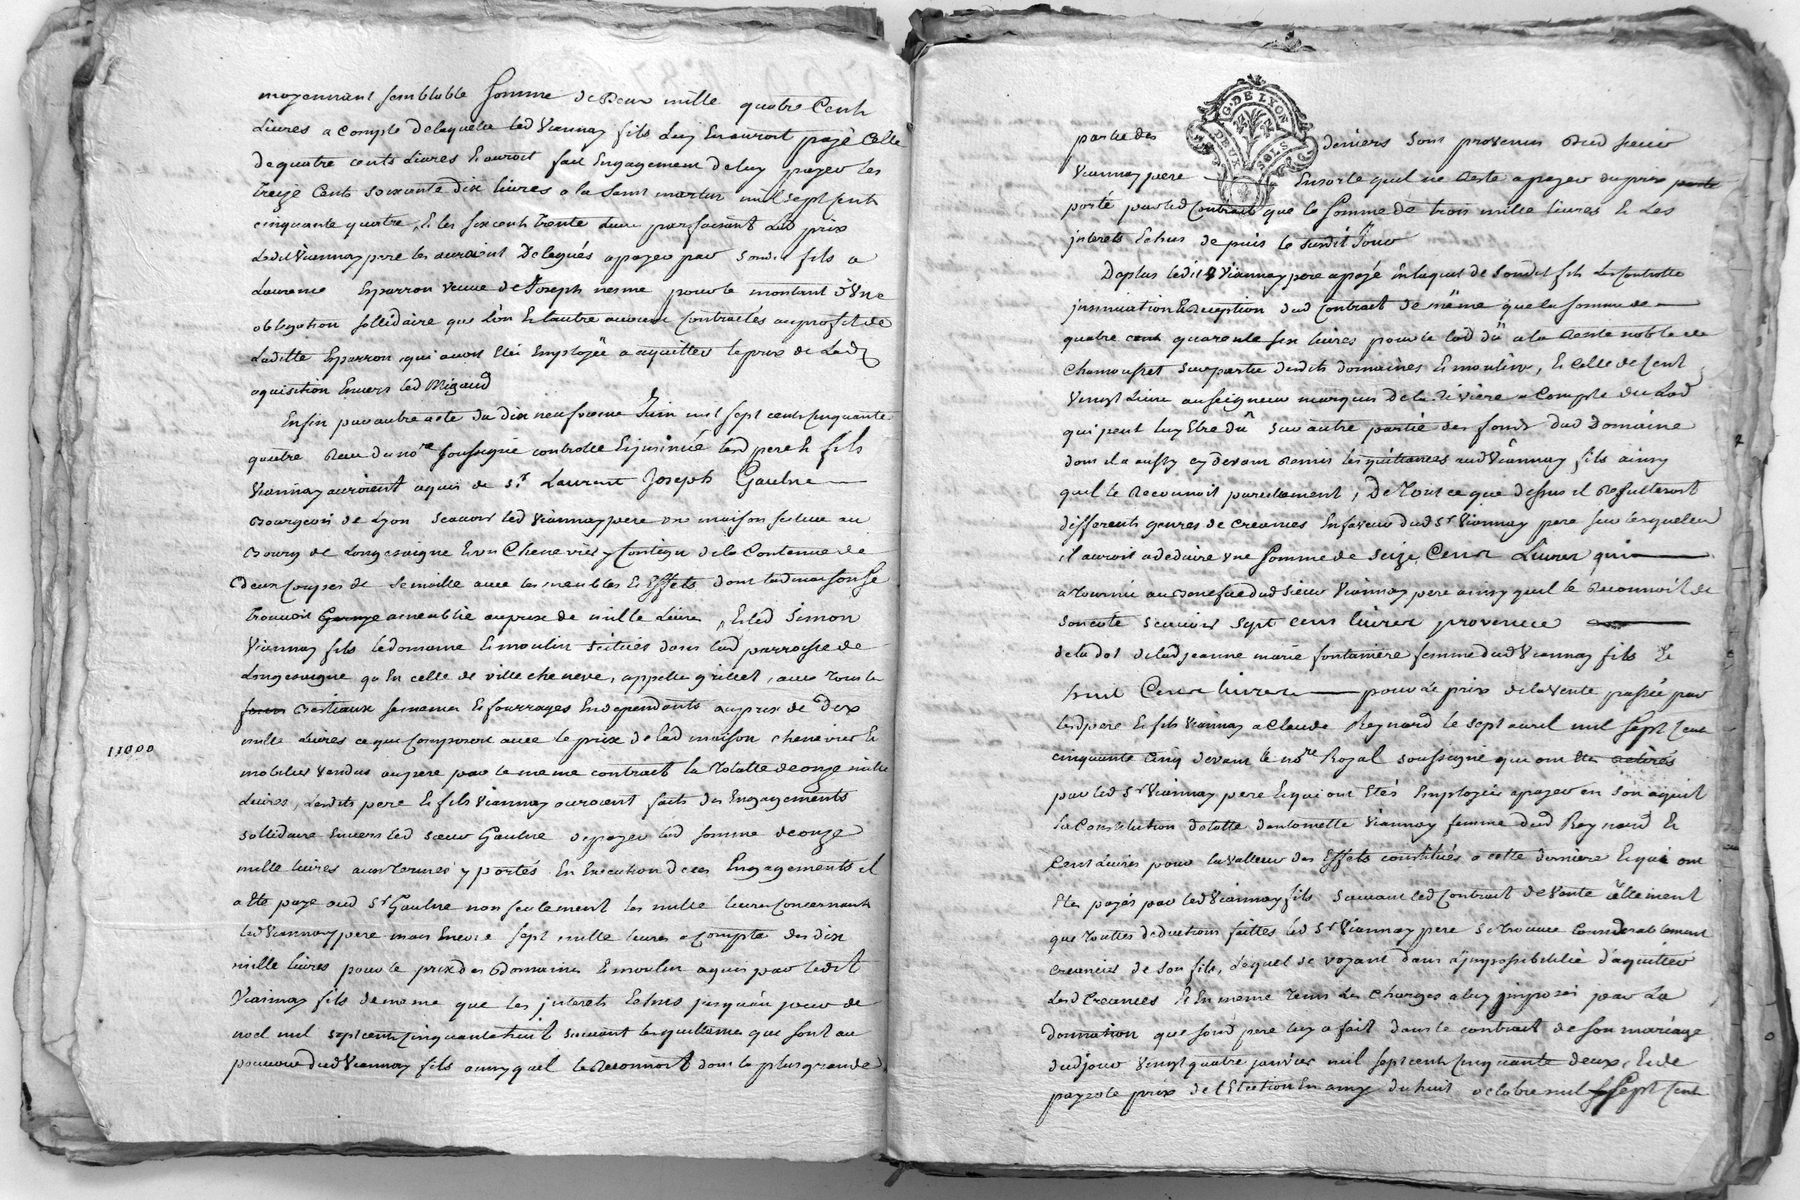 moyennant semblable somme de Deux mille quatre Cent
Livres a compte de laquelle led Viannay fils luy En auroit payé Celle
de quatre cents Livres Et auroit fait Engagement de luy payer les
treize Cents soixante dix livres a la saint martin mil sept Cent
cinquante quatre, Et les six cent trente Livres parfaisant led prix
Ledit Viannay pere les auroient Delegués a payer par son fils a
Laurence Esparron veuve de Joseph nesme pour le montant d'Une
obligation sollidaire que l'un Et l'autre avoient Contractés au profit de
Laditte Esparron qui avoit Eté Employëe a aquitter le prix de Lad
aquisition Envers led Migaud
Enfin par autre acte du dix neufvieme Juin mil sept cents cinquante
quatre Reçu du nore soussigné controllé Et insinué lesd pere Et fils
Viannay auroient aquis de sr Laurent Joseph Gaulne
Bourgeois de Lyon scavoir led Viannay pere une maison scitue au
Bourg de Longesaigne Et un Chenevier y Contigu de la Contenue de
Deux Coupes de semaille avec les meubles Et Effets dont lad maison se
trouvoit ameublie au prix de mille Livres, Et led Simon
Viannay fils le domaine Et moulin scitués dans lad parroisse de
Longesaigne qu'En celle de villecheneve, appellé grillet, avec tous les
Bestiaux semences Et fourrages En dependants au prix de Dix
mille Livres ce qui Composoit avec le prix de lad maison chenevier Et
11000
mobilier vendus au pere par le meme contract la Totalle de onze mille
Livres, Lesdits pere Et fils Viannay auroient faits des Engagements
sollidaire Envers led sieur Gaulne de payer lad somme de onze
mille livres aux termes y portés En Execution de ces Engagements il
a Eté payé aud Sr Gaulne non seulement les mille livres Concernant
led Viannay pere mais Encore sept mille livres a Compte des dix
mille livres pour le prix des Domaines Et moulin aquis par ledit
Viannay fils de meme que les interets Echus jusqu'au jour de
noel mil sept cent cinquante huit suivant les quittances qui sont au
pouvoir dud Viannay fils ainsy quil le Reconnoit dont la plus grande
G. DE LYON
DEUX SOLS
partie des deniers sont provenus dud sieur
Viannay pere Ensorte quil ne Reste a payer du prix
porté par led Contract que la somme de trois mille livres Et Les
interets Echus depuis le susdit Jour
De plus ledit Viannay pere a payé En laquit de sondit fils Le Controlle
insinuation Et Reception dud Contract de même que la somme de
quatre cent quarente six livres pour le lod dû a la Rente noble de
Chamousset sur partie desdits domaines Et moulin, Et Celle de Cent
Vingt Livres au seigneur marquis De la Riviere a Compte du Lod
qui peut luy Etre dû sur autre partie des fonds dud Domaine
dont il a aussy cy devant Remis les quittances aud Viannay fils ainsy
quil le Reconnoit pareillement, De Tout ce que dessus il Resulteroit
differents genres de creances En faveur dud Sr Viannay pere sur lesquelles
il auroit a deduire une somme de seize Cent Livres qui
a tourné au Benefice dud sieur Viannay pere ainsy quil le Reconnoit de
son coté scavoir sept cent livres provenue
de la dot de lad jeanne marie fontaniere femme dud Viannay fils Et
huit Cent livres pour le prix de la Vente passée par
lesd pere Et fils Viannay a Claude Reynard le sept avril mil sept Cent
cinquante cinq devant le nore Royal soussigné qui ont Eté retirés
par led Sr Viannay pere Et qui ont Etés Employés a payer En son aquit
la Constitution dotalle d'antoinette Viannay femme dud Reynard Et
Cent Livres pour la valleur des Effets constitués a cette derniere Et qui ont
Eté payés par led Viannay fils suivant led Contract de Vente tellement
que toutes deductions faittes led Sr Viannay pere se trouve Considerablement
creancier de son fils, Lequel se voyant dans l'impossibilité d'aquitter
Lesd Creances Et En meme tems Les Charges a luy imposées par La
donnation que sond pere luy a fait dans le contract de son mariage
dud jour vingt quatre janvier mil sept cent cinquante deux, Et de
payer le prix de l'Election En amy du huit octobre mil sept Cent